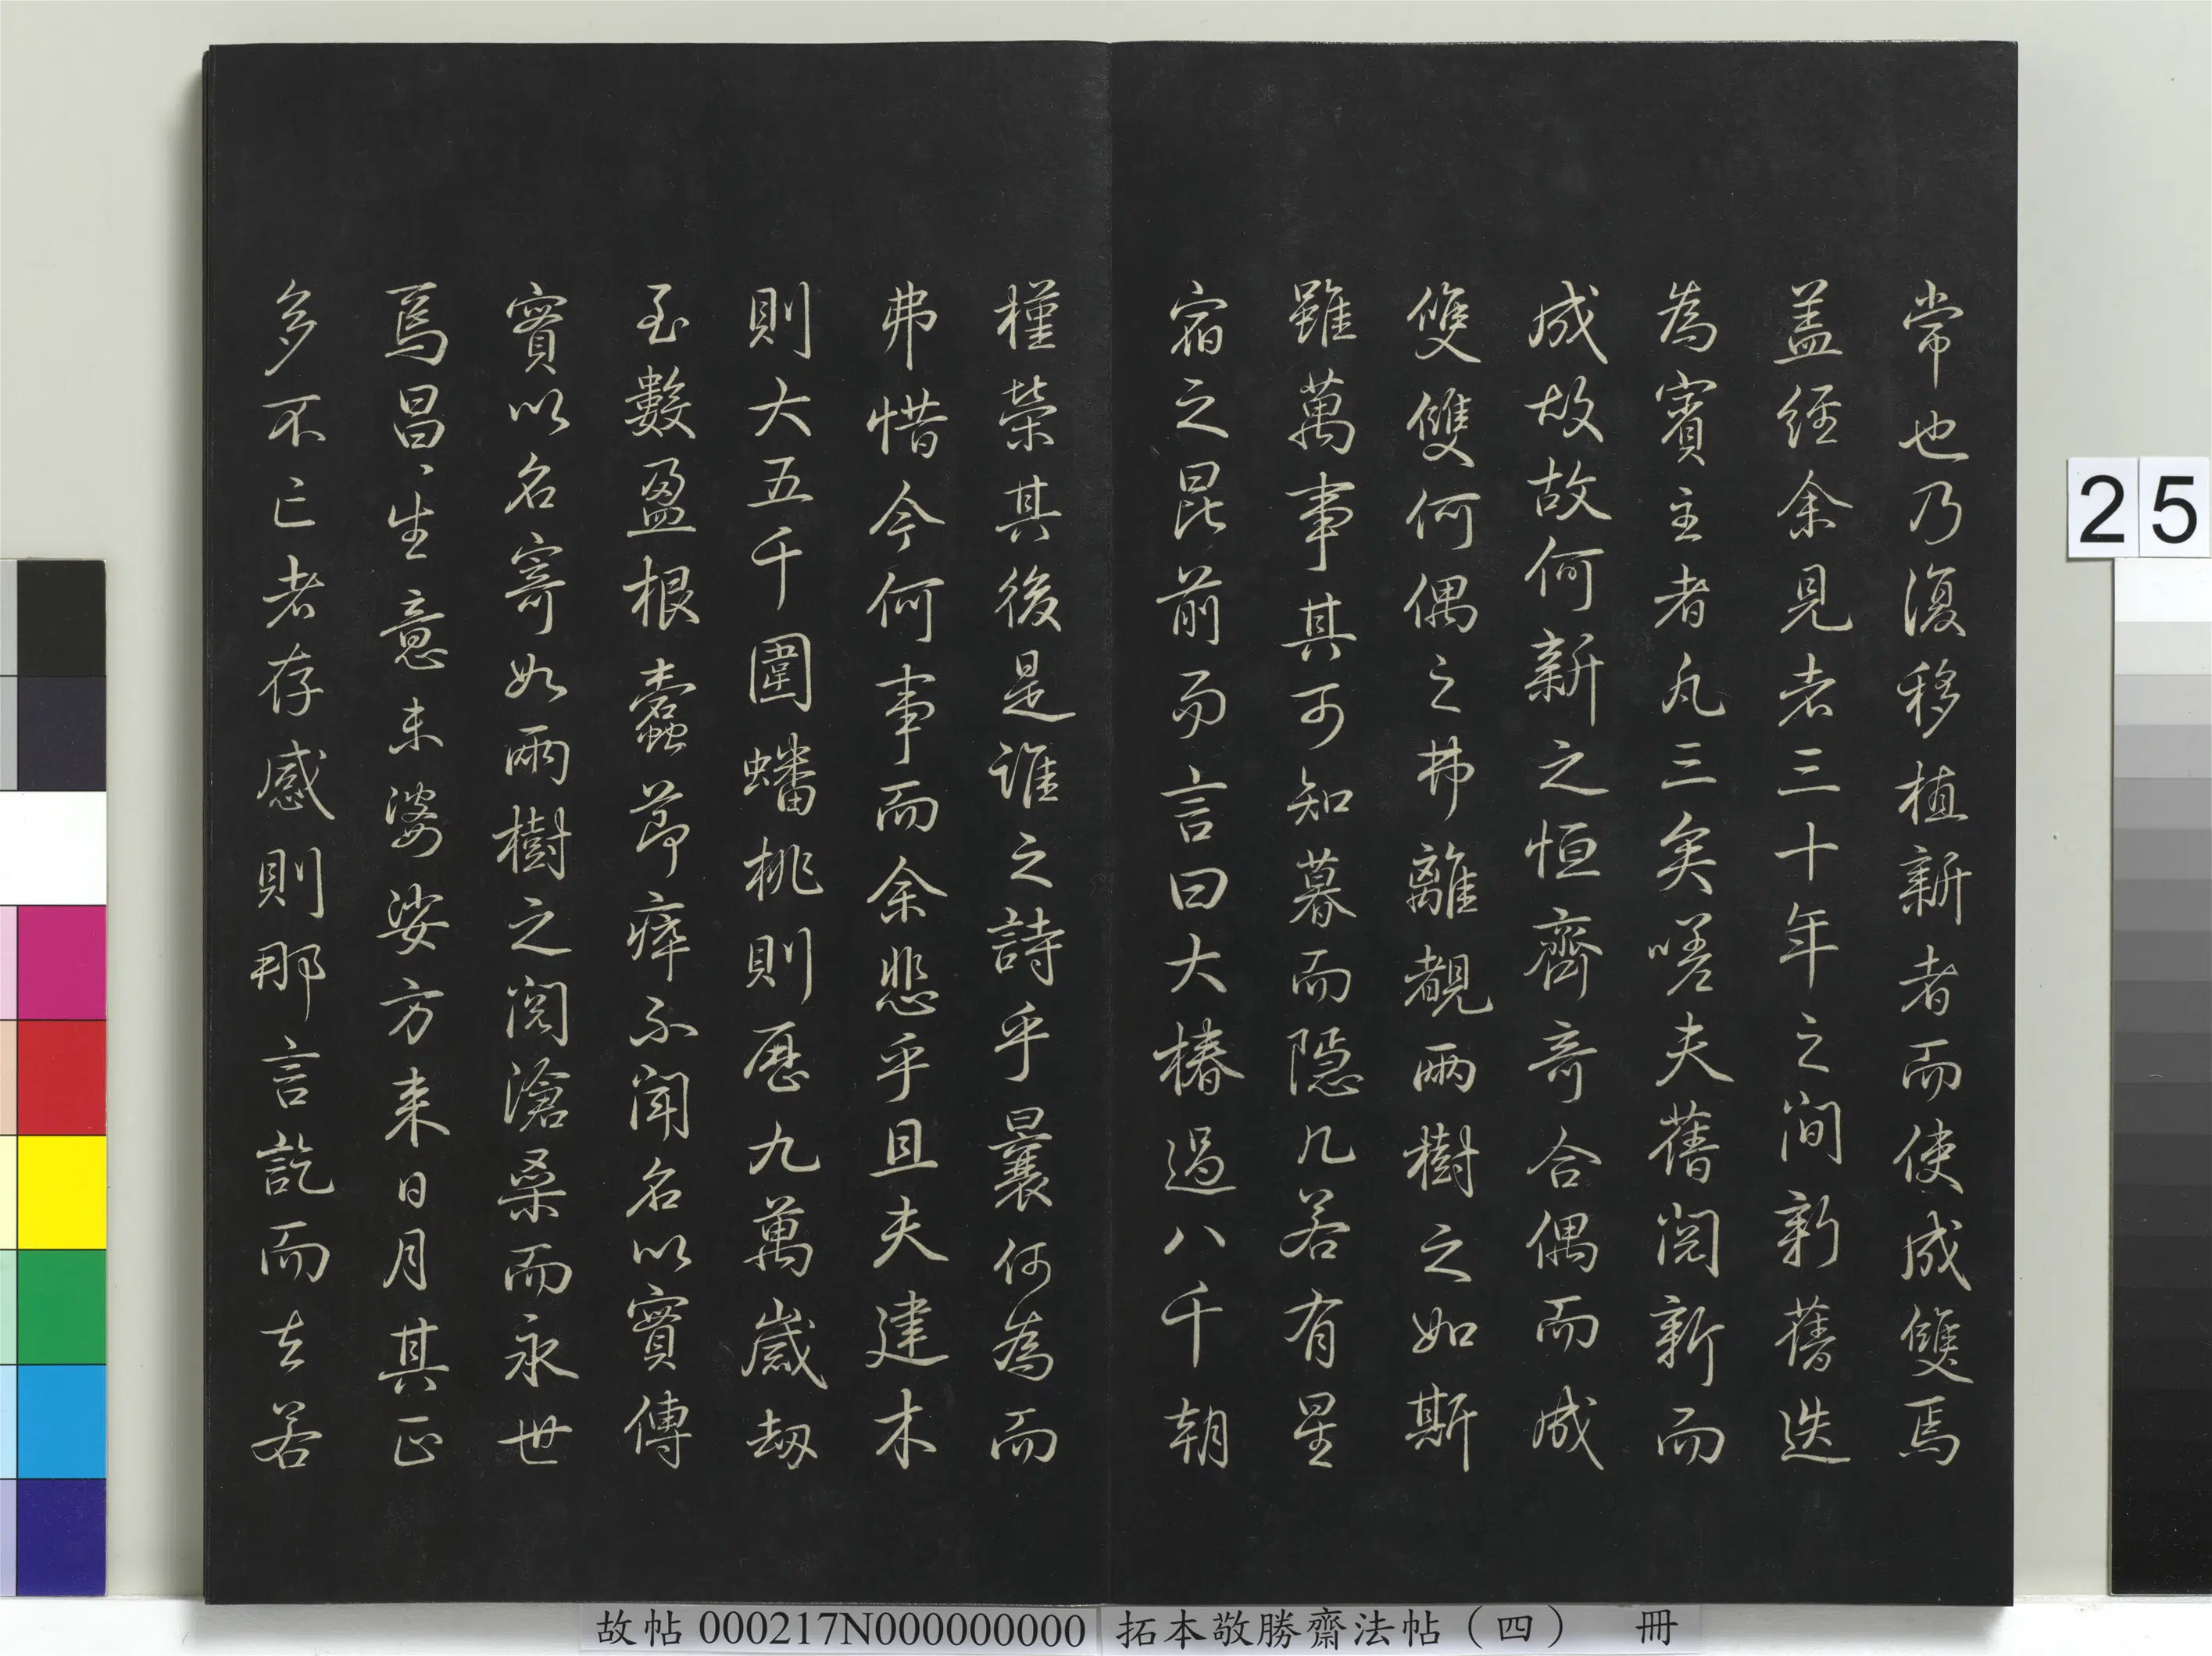 常也乃復移植新者而使成雙焉
盖經余見者三十年之間新舊迭
為賓主者凡三矣嗟夫舊閱新而
成故故何新之恒齊奇合偶而成
雙雙何偶之弗離覩兩樹之如斯
雖萬事其可知暮而隱几若有星
宿之昆前而言曰大椿過八千朝
槿榮其後是誰之詩乎曩何為而
弗惜今何事而余悲乎且夫建木
則大五千圍蟠桃則歷九萬歲劫
至數盈根蠹節瘁不聞名以實傳
實以名寄如兩樹之閱滄桑而永世
焉昌、生意未婆娑方来日月其正
多不亡者存感則那言訖而去若
25
故帖000217N000000000 拓本敬勝齋法帖（四） 冊